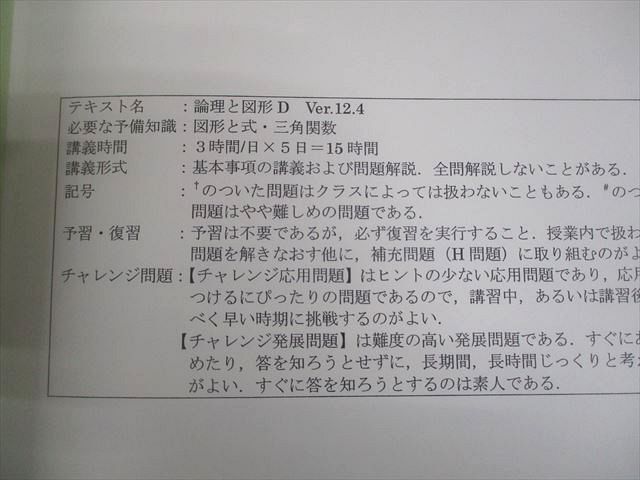 テキスト名 : 論理と図形 D Ver.12.4
必要な予備知識 : 図形と式・三角関数
講義時間 : ３時間/日×５日＝15 時間
講義形式 : 基本事項の講義および問題解説．全問解説しないことがある．
記号 : †のついた問題はクラスによっては扱わないこともある．#のつ
問題はやや難しめの問題である．
予習・復習 : 予習は不要であるが，必ず復習を実行すること．授業内で扱わ
問題を解きなおす他に，補充問題（H 問題）に取り組むのがよ
チャレンジ問題 : 【チャレンジ応用問題】はヒントの少ない応用問題であり，応
つけるにぴったりの問題であるので，講習中，あるいは講習後
べく早い時期に挑戦するのがよい．
【チャレンジ発展問題】は難度の高い発展問題である．すぐにあ
めたり，答を知ろうとせずに，長期間，長時間じっくりと考
がよい．すぐに答を知ろうとするのは素人である．